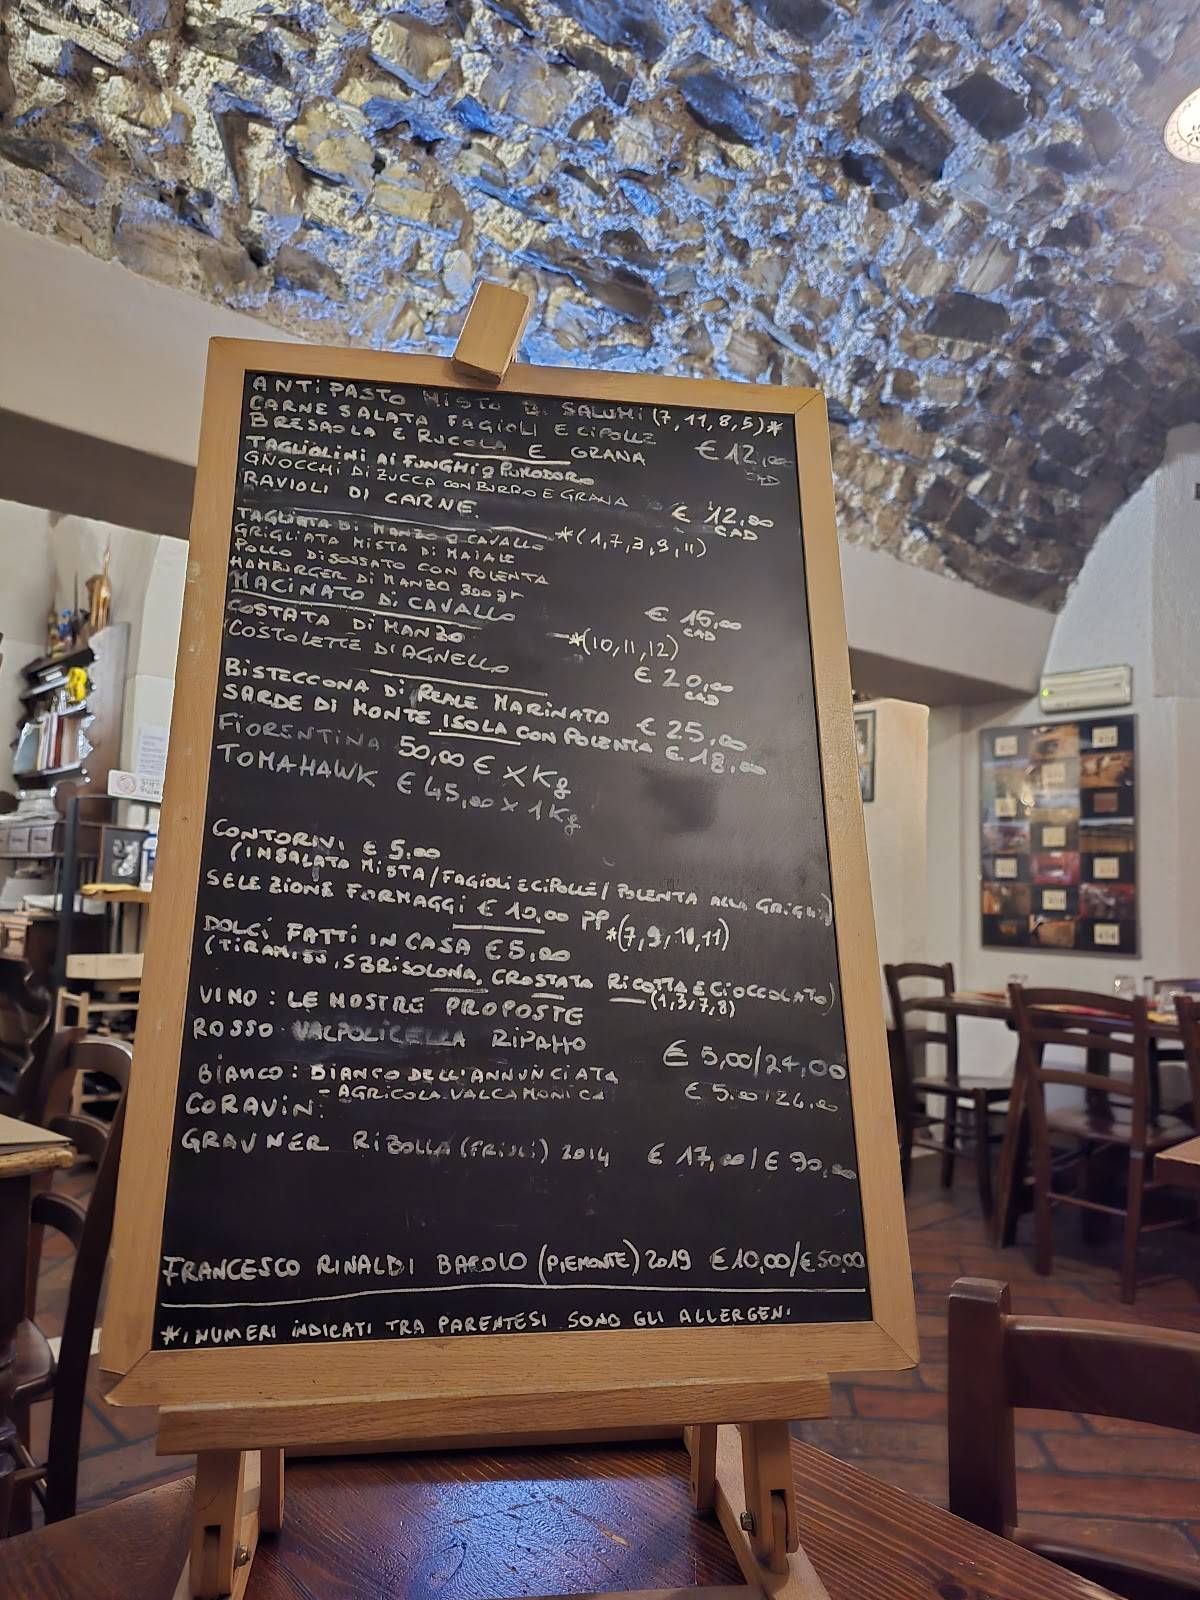 ANTIPASTO MISTO DI SALUMI (7,11,8,5)*
CARNE SALATA FAGIOLI E CIPOLLE
BRESAOLA E RUCOLA E GRANA € 12,00 CAD
TAGLIOLINI AI FUNGHI O POMODORO
GNOCCHI DI ZUCCA CON BURRO E GRANA
RAVIOLI DI CARNE € 12,00 CAD
*(1,7,3,9,11)
TAGLIATA DI MANZO O CAVALLO
GRIGLIATA MISTA DI MAIALE
POLLO DISOSSATO CON POLENTA
HAMBURGER DI MANZO 300gr
MACINATO DI CAVALLO € 15,00 CAD
*(10,11,12)
COSTATA DI MANZO
COSTOLETTE D'AGNELLO € 20,00 CAD
BISTECCONA DI REALE MARINATA € 25,00
SARDE DI MONTE ISOLA CON POLENTA € 18,00
FIORENTINA 50,00 € x Kg
TOMAHAWK € 45,00 x 1Kg
CONTORNI € 5,00
(INSALATA MISTA/FAGIOLI E CIPOLLE/POLENTA ALLA GRIGLIA)
SELEZIONE FORMAGGI € 10,00 PP
*(7,9,10,11)
DOLCI FATTI IN CASA € 5,00
(TIRAMISU, SBRISOLONA, CROSTATA RICOTTA E CIOCCOLATO)
(1,3,7,8)
VINO: LE NOSTRE PROPOSTE
ROSSO VALPOLICELLA RIPASSO € 5,00/24,00
BIANCO: BIANCO DELL'ANNUNCIATA € 5,00/24,00
- AGRICOLA VALCAMONICA
CORAVIN:
GRAVNER RIBOLLA (FRIULI) 2014 € 17,00/€ 90,00
FRANCESCO RINALDI BAROLO (PIEMONTE) 2019 € 10,00/€ 50,00
*I NUMERI INDICATI TRA PARENTESI SONO GLI ALLERGENI